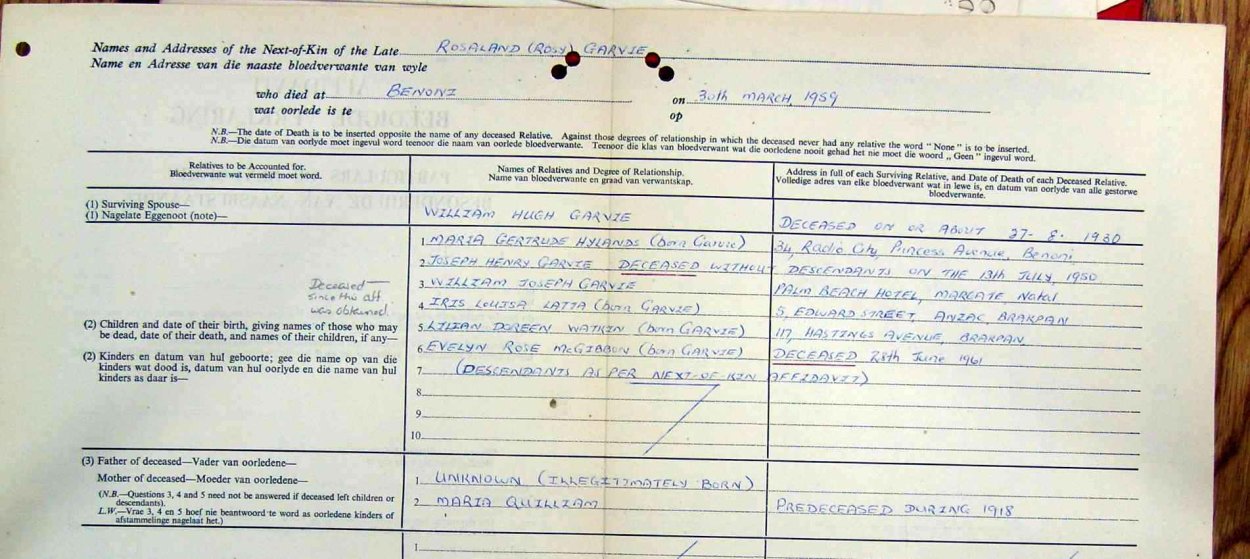 Names and Addresses of the Next-of-Kin of the Late ROSALAND (ROSY) GARVIE
Name en Adresse van die naaste bloedverwante van wyle
who died at BENONI on 30th MARCH, 1959
wat oorlede is te op
N.B.—The date of Death is to be inserted opposite the name of any deceased Relative. Against those degrees of relationship in which the deceased never had any relative the word "None" is to be inserted.
N.B.—Die datum van oorlyde moet ingevul word teenoor die naam van oorlede bloedverwante. Teenoor die klas van bloedverwant wat die oorledene nooit gehad het nie moet die woord „Geen" ingevul word.
Relatives to be Accounted for.
Bloedverwante wat vermeld moet word.
Names of Relatives and Degree of Relationship.
Name van bloedverwante en graad van verwantskap.
Address in full of each Surviving Relative, and Date of Death of each Deceased Relative.
Volledige adres van elke bloedverwant wat in lewe is, en datum van oorlyde van elke gestorwe bloedverwante.
(1) Surviving Spouse—
(1) Nagelate Eggenoot (note)—
WILLIAM HUGH GARVIE DECEASED ON OR ABOUT 27-8-1930
1 MARIA GERTRUDE HYLANDS (born Garvie) 34, Radio City, Princess Avenue, Benoni
2 JOSEPH HENRY GARVIE DECEASED WITHOUT DESCENDANTS ON THE 13th JULY, 1950
Deceased
since this aff.
was obtained.
3 WILLIAM JOSEPH GARVIE PALM BEACH HOTEL, MARGATE, Natal
4 IRIS LOUISA LATTA (born GARVIE) 5, EDWARD STREET, ANZAC BRAKPAN
5 LILIAN DOREEN WATKIN (born GARVIE) 117, HASTINGS AVENUE, BRAKPAN
6 EVELYN ROSE McGIBBON (born GARVIE) DECEASED 28th June 1961
7 (DESCENDANTS AS PER NEXT-OF-KIN AFFIDAVIT)
8
9
10
(2) Children and date of their birth, giving names of those who may
be dead, date of their death, and names of their children, if any—
(2) Kinders en datum van hul geboorte; gee die name op van die
kinders wat dood is, datum van hul oorlyde en die name van hul
kinders as daar is—
(3) Father of deceased—Vader van oorledene—
Mother of deceased—Moeder van oorledene—
1 UNKNOWN (ILLEGITIMATELY BORN)
2 MARIA QUILLIAM PREDECEASED DURING 1918
(N.B.—Questions 3, 4 and 5 need not be answered if deceased left children or
descendants).
L.W.—Vrae 3, 4 en 5 hoef nie beantwoord te word as oorledene kinders of
afstammelinge nagelaat het.)
1